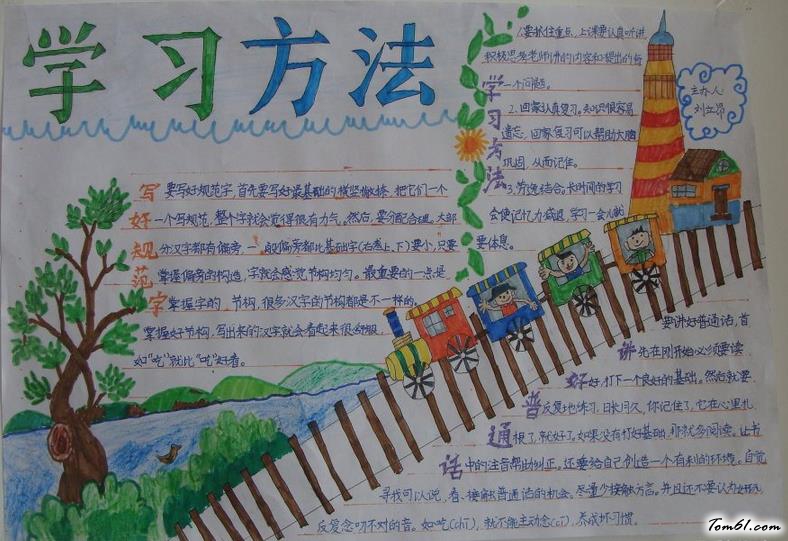 学习方法
学习方法
1.要抓住重点,上课要认真听讲
积极思考老师讲的内容和提出的每
一个问题。
2.回家认真复习。知识很容易
遗忘,回家复习可以帮助大脑
巩固,从而记住。
3.劳逸结合。长时间的学习
会使记忆力减退,学习一会儿就
要休息。
主办人
刘立昂
写好规范字
要写好规范字,首先要写好最基础的横竖撇捺,把它们一个
一个写规范,整个字就会觉得很有力气。然后,要分配合理,大部
分汉字都有偏旁,一般偏旁都比基础字(右叁上、下)要小,只要
掌握偏旁的构造,字就会感觉节构均匀。最重要的一点是
掌握字的节构,很多汉字的节构都是不一样的。
掌握好节构,写出来的汉字就会看起来很舒服
如"吃"就比"吃"好看。
讲好普通话
要讲好普通话,首
先在刚开始必须要读
好,打下一个良好的基础。然后就要
反复地练习,日长月久,你记住了,它在心里扎
根了,就好了。如果没有打好基础,那就多阅读。让书
中的注音帮助纠正,还要给自己创造一个有利的环境。自觉
寻找可以说,看、接触普通话的机会。尽量少接触方言。并且还不要认为
反爱念叨不对的音。如吃(chī),就不能主动念(cī),养成坏习惯。
Tom61.com